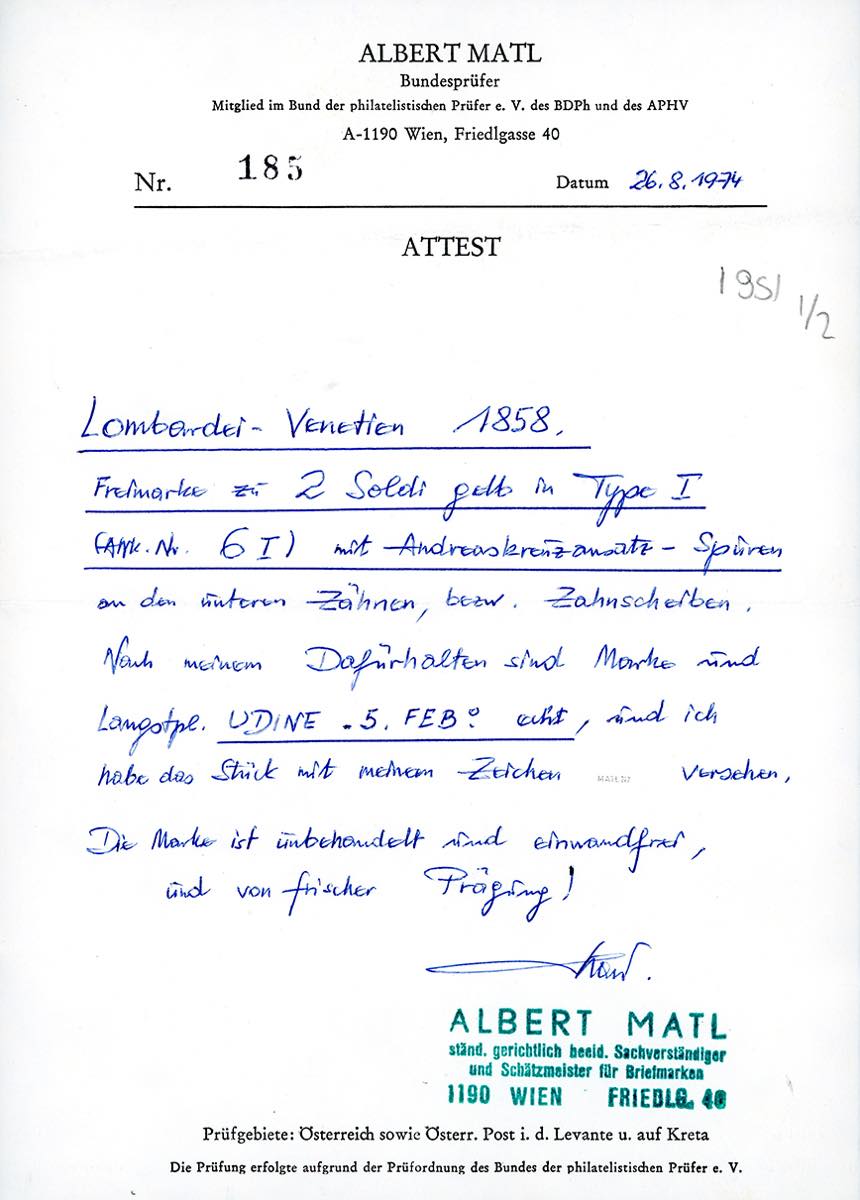 ALBERT MATL
Bundesprüfer
Mitglied im Bund der philatelistischen Prüfer e. V. des BDPh und des APHV
A-1190 Wien, Friedlgasse 40
Nr. 185 Datum 26.8.1974
ATTEST
1951 1/2
Lombardei- Venetien 1858.
Freimarke zu 2 Soldi gelb in Type I
(ANK. Nr. 6 I) mit Andreaskreuzansatz- Spuren
an den unteren Zähnen, bezw. Zahnscheiben.
Nach meinem Dafürhalten sind Marke und
Langstpl. UDINE . 5. FEB? echt, und ich
habe das Stück mit meinem Zeichen versehen.
Die Marke ist unbehandelt und einwandfrei,
und von frischer Prägung!
ALBERT MATL
ständ. gerichtlich beeid. Sachverständiger
und Schätzmeister für Briefmarken
1190 WIEN FRIEDLG. 40
Prüfgebiete: Österreich sowie Österr. Post i. d. Levante u. auf Kreta
Die Prüfung erfolgte aufgrund der Prüfordnung des Bundes der philatelistischen Prüfer e. V.